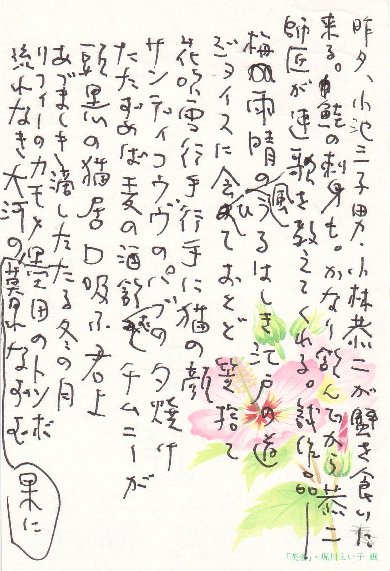 昨夕、小池三子男・小林恭二が蟹を食いに
来る。鮭の刺身も。かなり飲んでから恭二
師匠が連歌を教えてくれる。試作品―
梅雨晴の風うるはしき江戸の道
ジョイスに会ひておとど筆捨て
花吹雪行手行手に猫の顔
サンディコウヴのパブの夕焼け
たたずめば麦の酒飲むチムニーが
の猫居口吸ふ君よ
あづましき滴したたる冬の月
リフィーのカモメ墨田のトンボ
流れなき大河の果に
「芙蓉」・堀川えい子 画